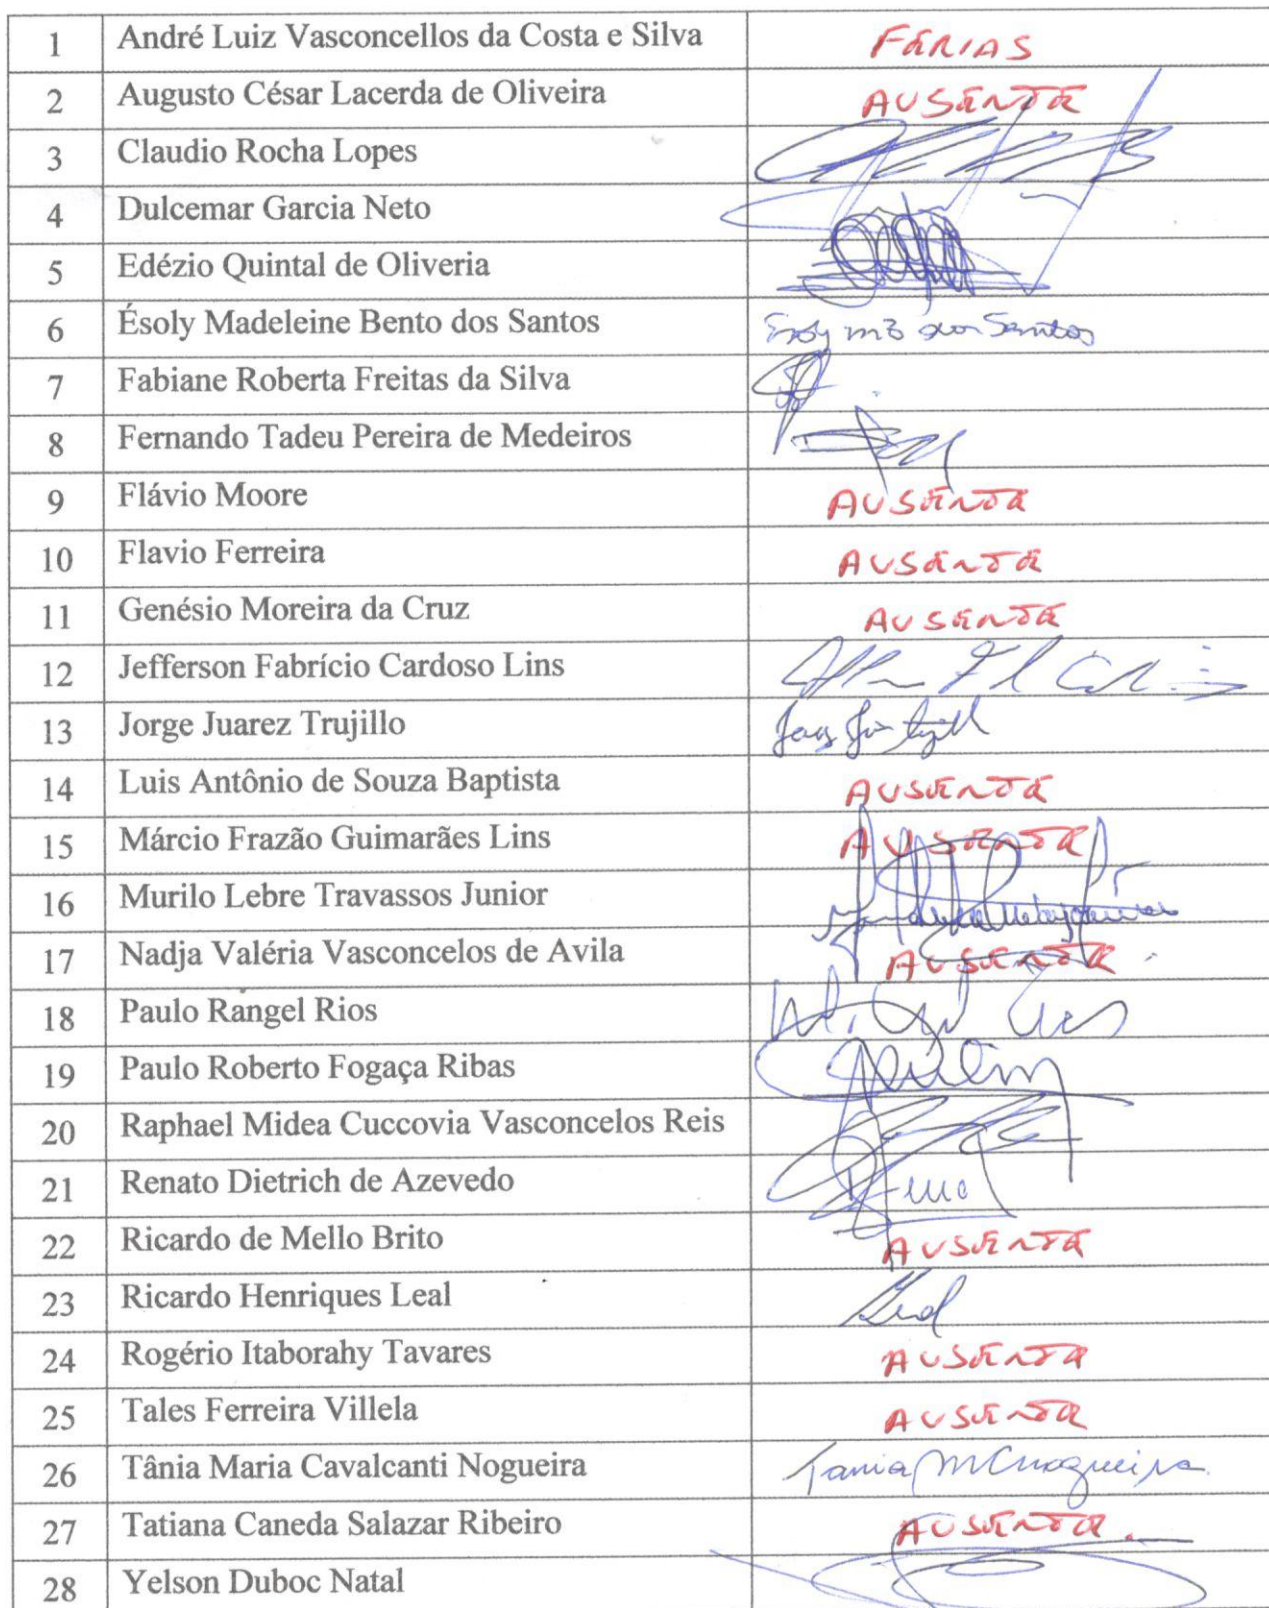 1 André Luiz Vasconcellos da Costa e Silva FÉRIAS
2 Augusto César Lacerda de Oliveira AUSENTE
3 Claudio Rocha Lopes
4 Dulcemar Garcia Neto
5 Edézio Quintal de Oliveria
6 Ésoly Madeleine Bento dos Santos
7 Fabiane Roberta Freitas da Silva
8 Fernando Tadeu Pereira de Medeiros
9 Flávio Moore AUSENTE
10 Flavio Ferreira AUSENTE
11 Genésio Moreira da Cruz AUSENTE
12 Jefferson Fabrício Cardoso Lins
13 Jorge Juarez Trujillo
14 Luis Antônio de Souza Baptista AUSENTE
15 Márcio Frazão Guimarães Lins AUSENTE
16 Murilo Lebre Travassos Junior
17 Nadja Valéria Vasconcelos de Avila AUSENTE
18 Paulo Rangel Rios
19 Paulo Roberto Fogaça Ribas
20 Raphael Midea Cuccovia Vasconcelos Reis
21 Renato Dietrich de Azevedo
22 Ricardo de Mello Brito AUSENTE
23 Ricardo Henriques Leal Leal
24 Rogério Itaborahy Tavares AUSENTE
25 Tales Ferreira Villela AUSENTE
26 Tânia Maria Cavalcanti Nogueira Tania M C Nogueira
27 Tatiana Caneda Salazar Ribeiro AUSENTE.
28 Yelson Duboc Natal